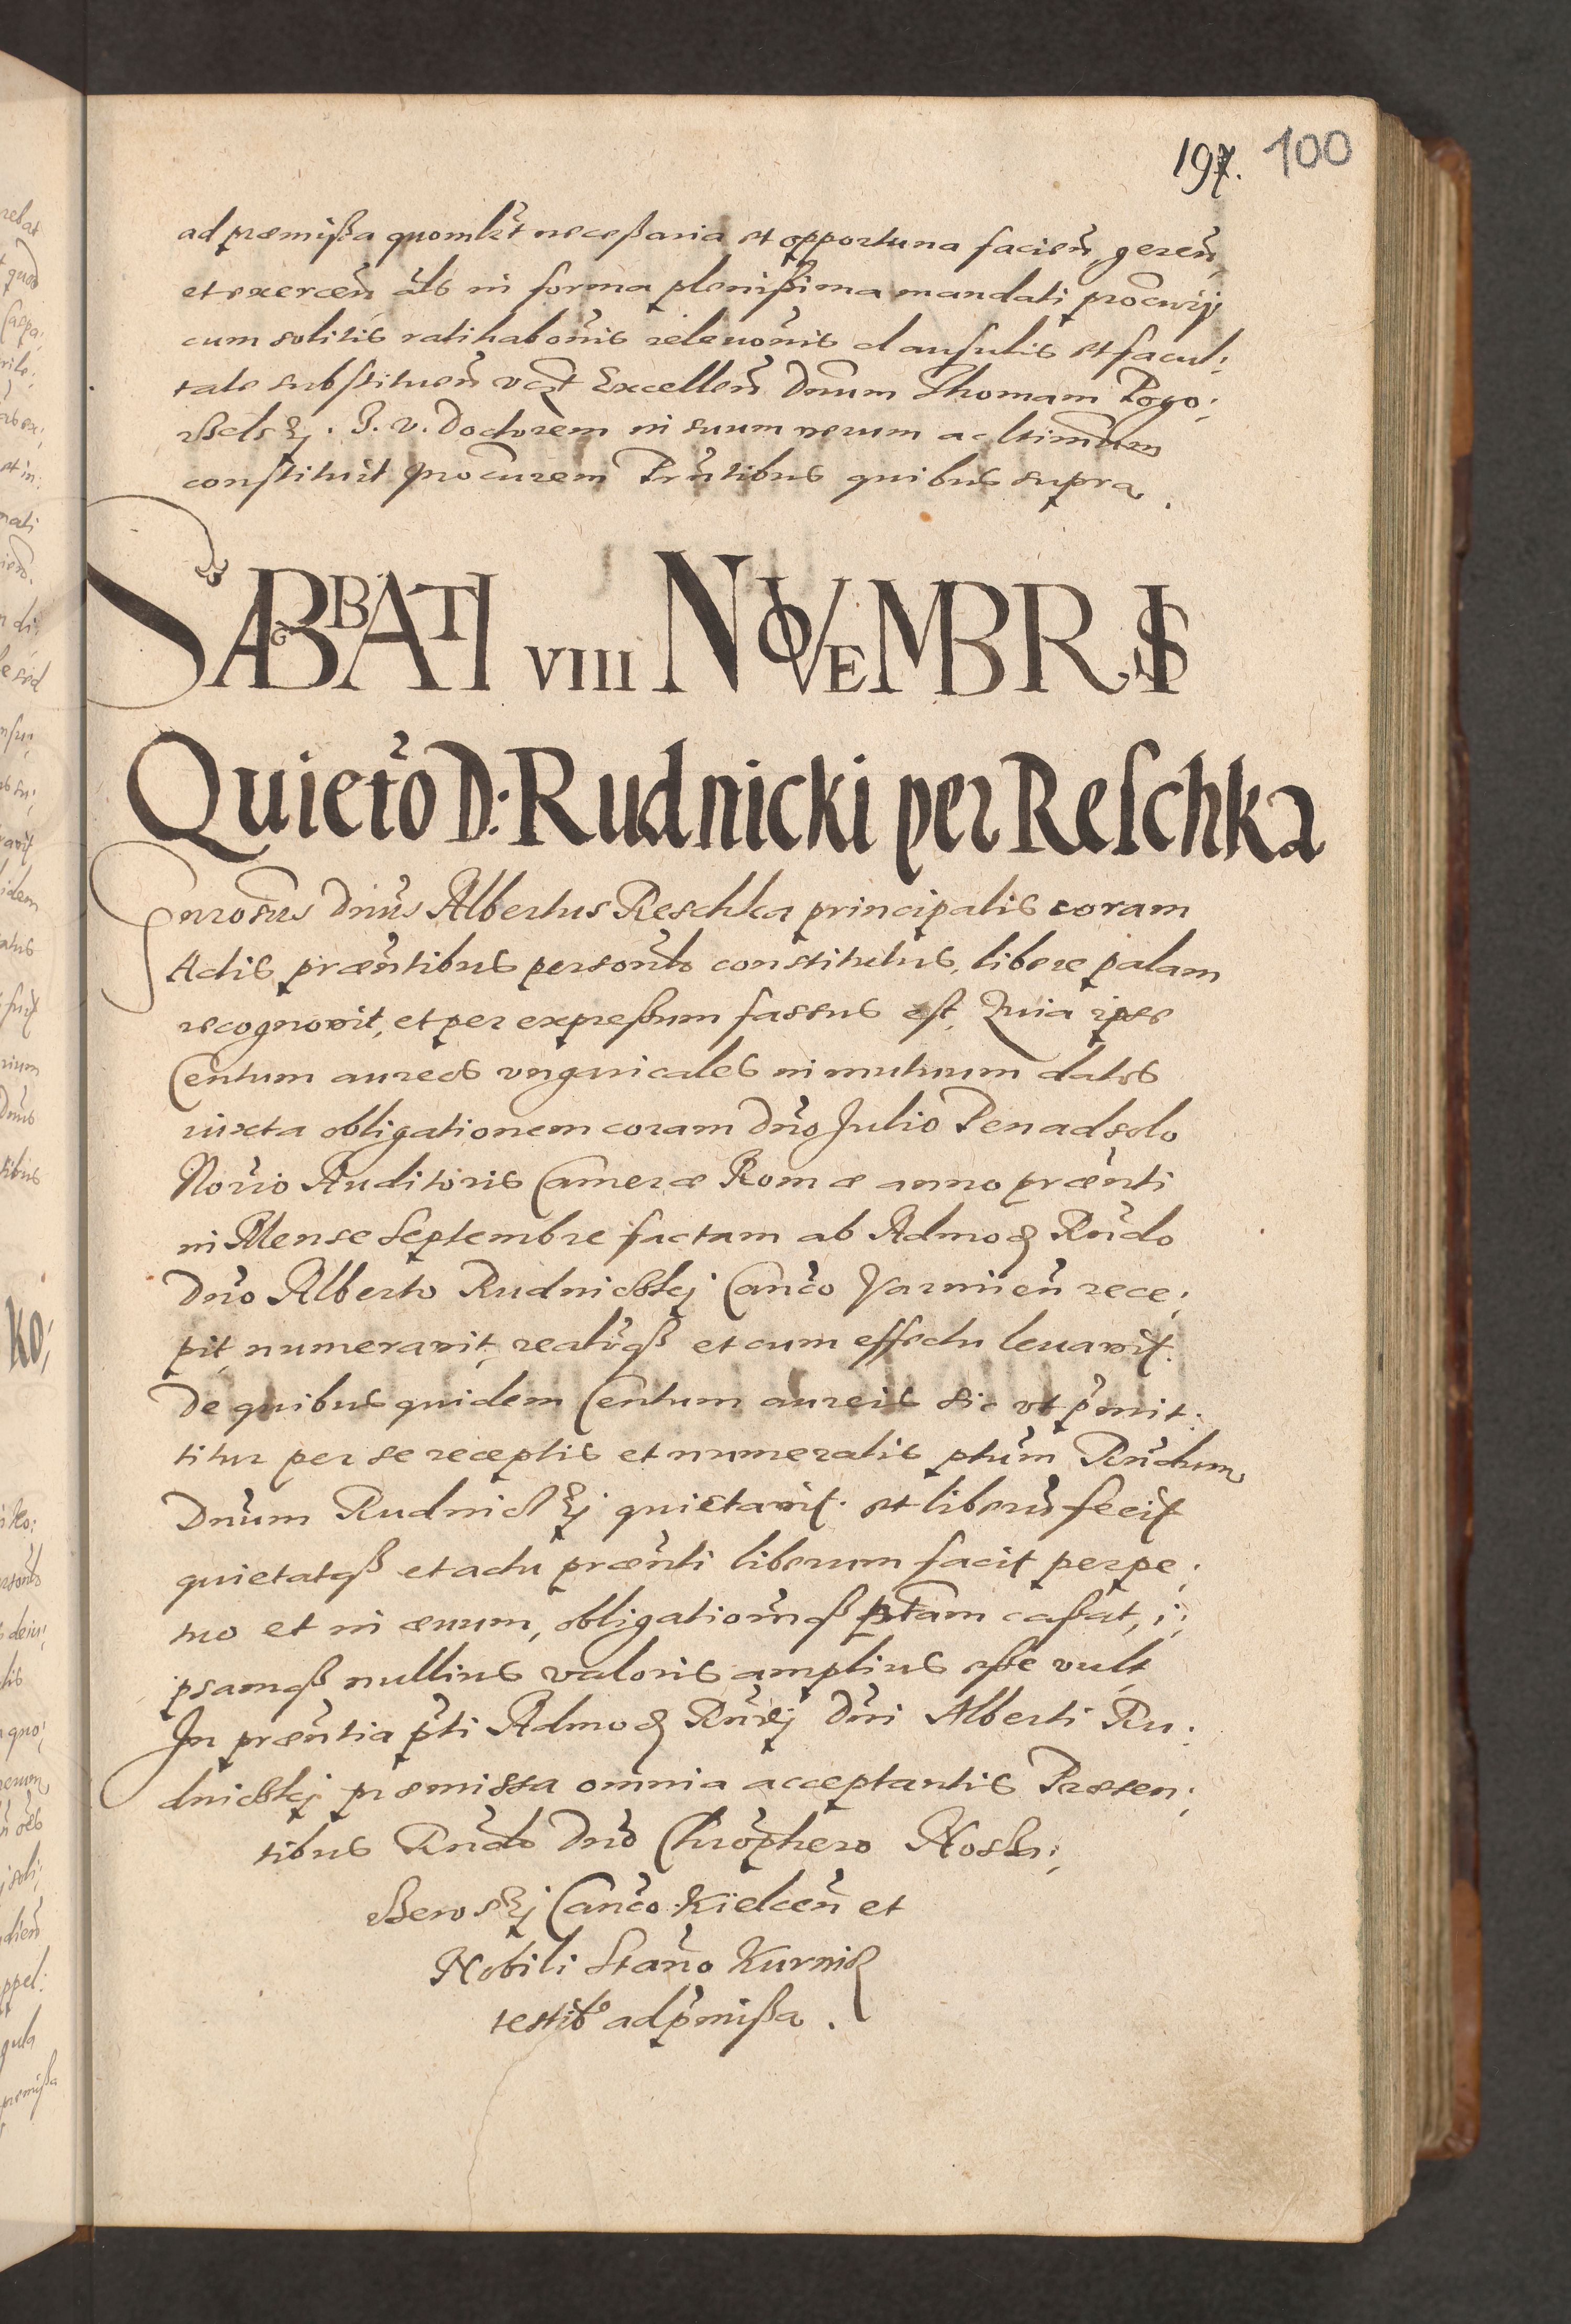 197. 100
ad præmißa quomlt necessaria et opportuna facien, geren,
et exercen, als in forma plenißima mandati procurij
cum solitis ratihabonis releuonis clausulis et facul:
tate substituen vᵹt Excellen Dnum Thomam Pogo:
. J. V. Doctorem in suum verum ac ltimum
constituit procurem Pntibus quibus supra.
SABBATI VIII NOVEMBRIS
Quieto D: Rudnicki per Reschka
Gnrosus Dnus Albertus Reschka principalis coram
Actis præntibus personlr constitutus, libere palam
recognovit, et per expreßum fassus est, Quia ipse
Centum aureos vngaricales in mutuum datos
iuxta obligationem coram Dno Julio Penadsolo
Norio Auditoris Cameræ Romæ anno prænti
in Mense Septembre factam ab Admoᵹ Rndo
Dno Alberto Rudnickj Canco Varmien rece:
pit, numeravit, realrqß et cum effectu leuavit.
De quibus quidem Centum aureis sic vt pmit:
titur per se receptis et numeratis ptum Rndum
Dnum Rudnickj quietavit. et liberu fecit
quietatqß et actu prænti liberum facit perpe:
tuo et in æuum, obligationqß ptam caßat, i:
psamqß nullius valoris amplius eße vult
In præntia pti Admoᵹ Rndj Dni Alberti Ru:
dnickj præmissa omnia acceptantis Præsen:
tibus Rndo Dno Chrophero
Canco Kielcen et
Nobili Stano Kurnik
testib9 ad pmißa.
ko: